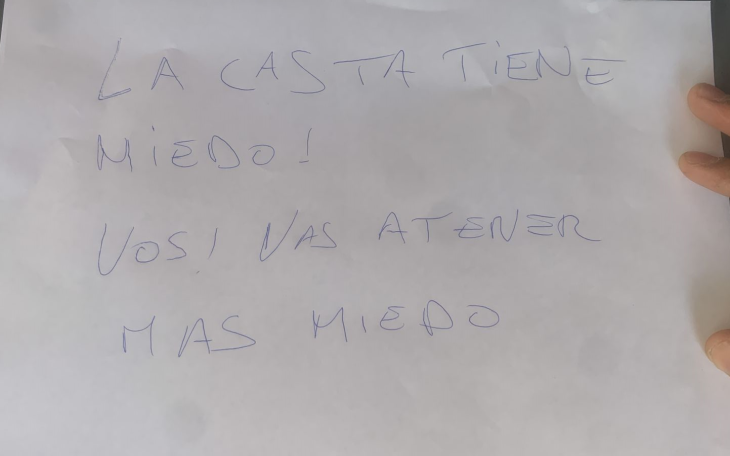 LA CASTA TiENE
MiEDO!
VOS! VAS ATENER
MAS MIEDO